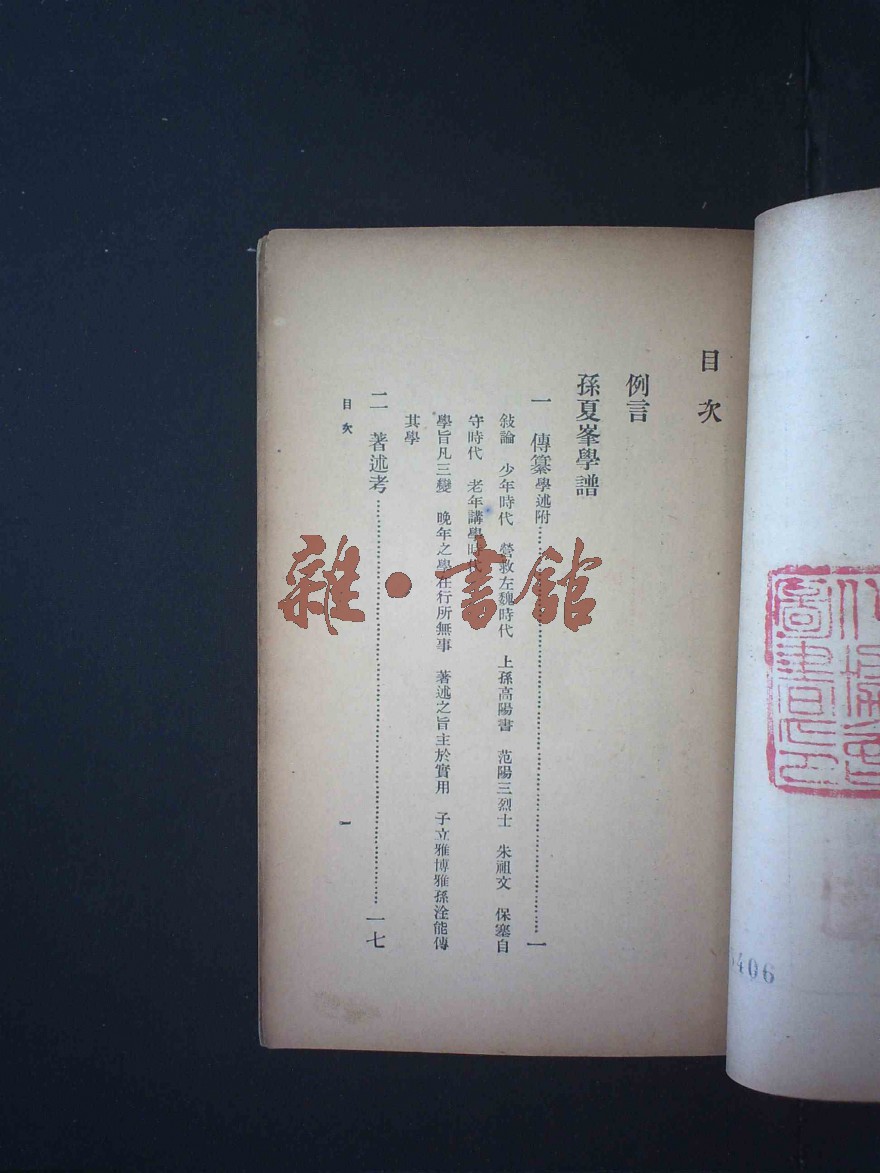 目次
例言
孫夏峯學譜
一 傳纂學述附……一
敍論 少年時代 營救左魏時代 上孫高陽書 范陽三烈士 朱祖文 保塞自
守時代 老年講學時代
學旨凡三變 晚年之學在行所無事 著述之旨主於實用 子立雅博雅孫淦能傳
其學
二 著述考……一七
目次
一
雜·書館
406